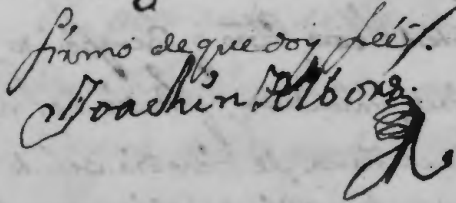 firmo de que doy feé.
Joachin Albors.